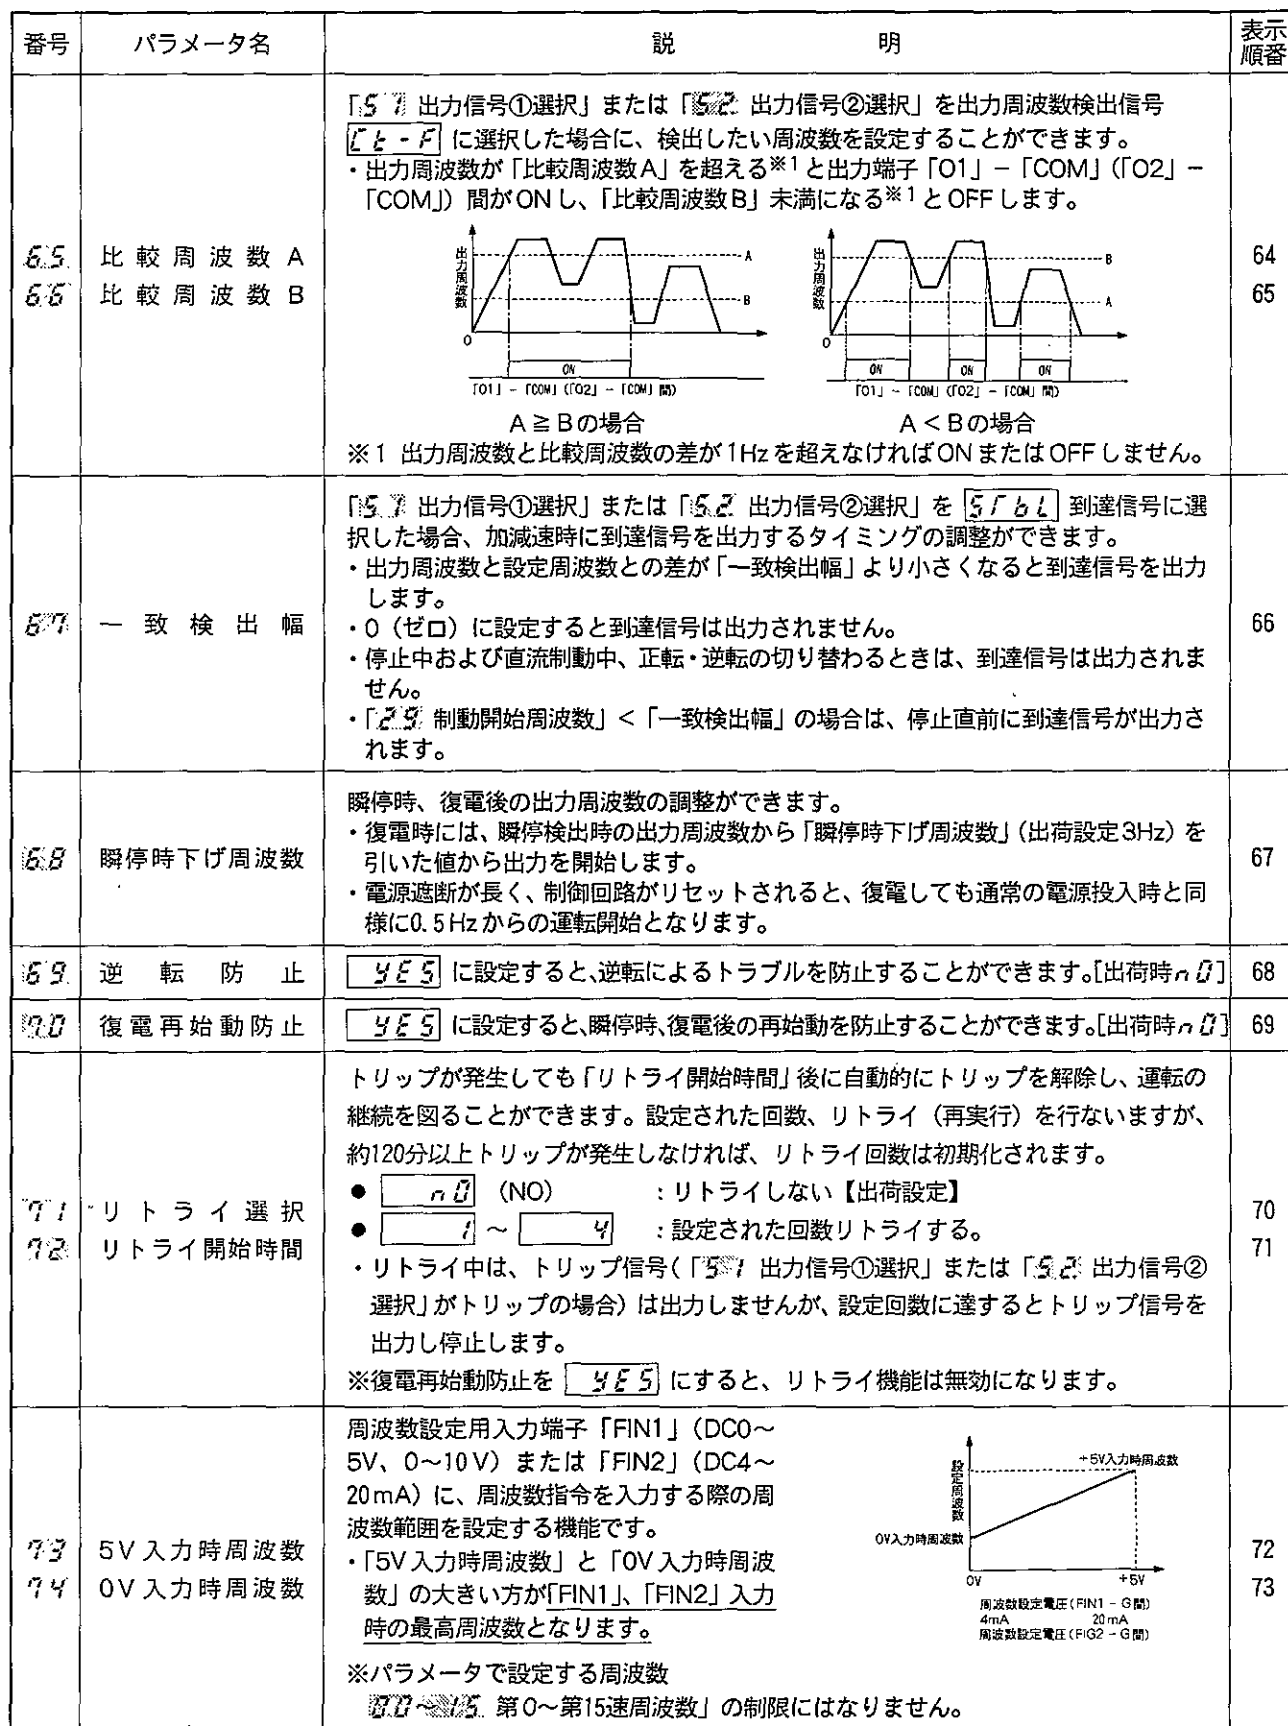 番号 パラメータ名 説 明 表示順番
「51 出力信号①選択」または「52 出力信号②選択」を出力周波数検出信号
Ct-F に選択した場合に、検出したい周波数を設定することができます。
・出力周波数が「比較周波数A」を超える※1と出力端子「O1」-「COM」(「O2」-
「COM」)間がONし、「比較周波数B」未満になる※1とOFFします。
65 比較周波数A 64
66 比較周波数B 65
出力周波数
A
B
0
ON
「O1」-「COM」(「O2」-「COM」間)
A≧Bの場合
出力周波数
B
A
0
ON ON ON
「O1」-「COM」(「O2」-「COM」間)
A<Bの場合
※1 出力周波数と比較周波数の差が1Hzを超えなければONまたはOFFしません。
67 一致検出幅 66
「51 出力信号①選択」または「52 出力信号②選択」を STbL 到達信号に選
択した場合、加減速時に到達信号を出力するタイミングの調整ができます。
・出力周波数と設定周波数との差が「一致検出幅」より小さくなると到達信号を出力
します。
・0(ゼロ)に設定すると到達信号は出力されません。
・停止中および直流制動中、正転・逆転の切り替わるときは、到達信号は出力されま
せん。
・「29 制動開始周波数」<「一致検出幅」の場合は、停止直前に到達信号が出力さ
れます。
68 瞬停時下げ周波数 67
瞬停時、復電後の出力周波数の調整ができます。
・復電時には、瞬停検出時の出力周波数から「瞬停時下げ周波数」(出荷設定3Hz)を
引いた値から出力を開始します。
・電源遮断が長く、制御回路がリセットされると、復電しても通常の電源投入時と同
様に0.5Hzからの運転開始となります。
69 逆転防止 YES に設定すると、逆転によるトラブルを防止することができます。[出荷時nO] 68
70 復電再始動防止 YES に設定すると、瞬停時、復電後の再始動を防止することができます。[出荷時nO] 69
71 リトライ選択 70
72 リトライ開始時間 71
トリップが発生しても「リトライ開始時間」後に自動的にトリップを解除し、運転の
継続を図ることができます。設定された回数、リトライ(再実行)を行ないますが、
約120分以上トリップが発生しなければ、リトライ回数は初期化されます。
● nO (NO) :リトライしない【出荷設定】
● 1 ~ 4 :設定された回数リトライする。
・リトライ中は、トリップ信号(「51 出力信号①選択」または「52 出力信号②
選択」がトリップの場合)は出力しませんが、設定回数に達するとトリップ信号を
出力し停止します。
※復電再始動防止を YES にすると、リトライ機能は無効になります。
73 5V入力時周波数 72
74 0V入力時周波数 73
周波数設定用入力端子「FIN1」(DC0~
5V、0~10V)または「FIN2」(DC4~
20mA)に、周波数指令を入力する際の周
波数範囲を設定する機能です。
・「5V入力時周波数」と「0V入力時周波
数」の大きい方が「FIN1」、「FIN2」入力
時の最高周波数となります。
※パラメータで設定する周波数
00~15 第0~第15速周波数」の制限にはなりません。
設定周波数
+5V入力時周波数
0V入力時周波数
0V +5V
周波数設定電圧(FIN1-G間)
4mA 20mA
周波数設定電圧(FIG2-G間)